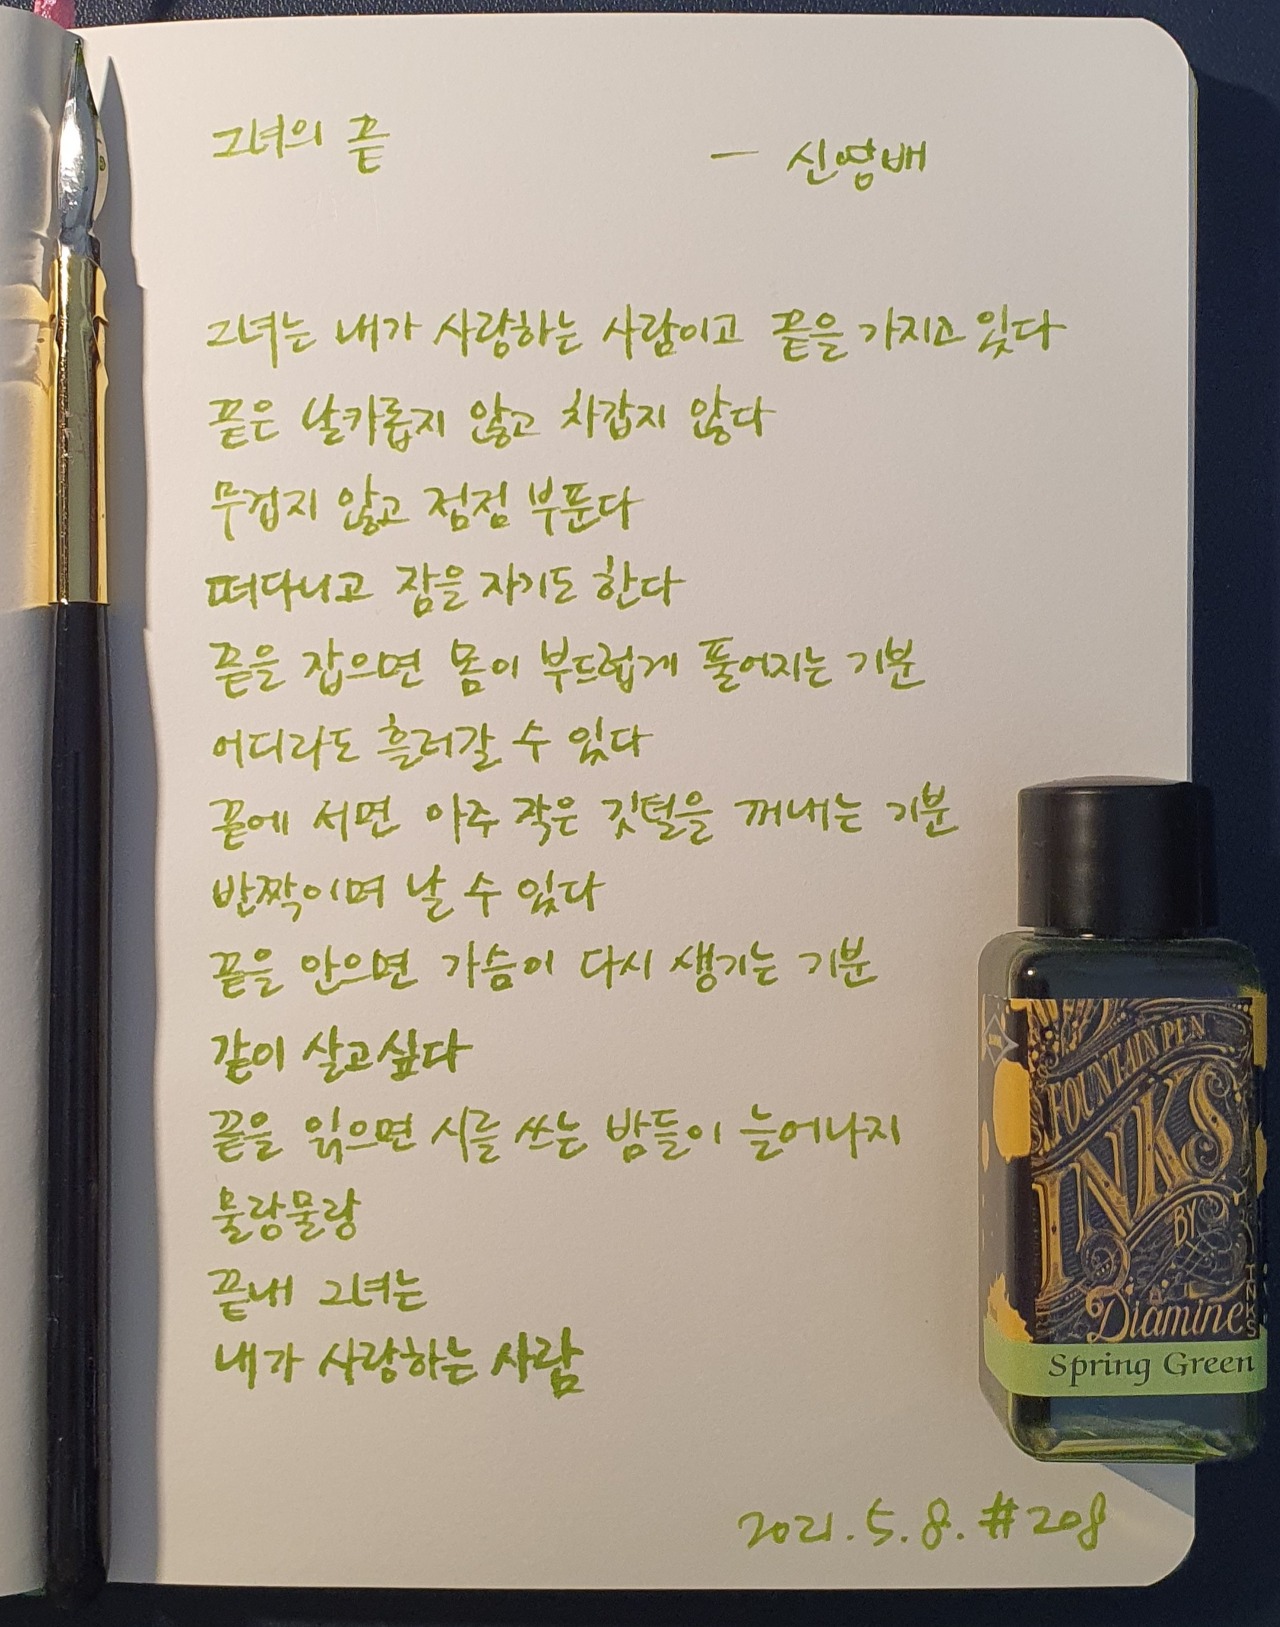 그녀의 끝 — 신영배
그녀는 내가 사랑하는 사람이고 끝을 가지고 있다
끝은 날카롭지 않고 차갑지 않다
무겁지 않고 점점 부푼다
떠다니고 잠을 자기도 한다
끝을 잡으면 몸이 부드럽게 풀어지는 기분
어디라도 흘러갈 수 있다
끝에 서면 아주 작은 깃털을 꺼내는 기분
반짝이며 날 수 있다
끝을 안으면 가슴이 다시 생기는 기분
같이 살고싶다
끝을 읽으면 시를 쓰는 밤들이 늘어나지
물랑물랑
끝내 그녀는
내가 사랑하는 사람
FOUNTAIN PEN
INKS
BY
Diamine
INKS
Spring Green
2021.5.8.#208